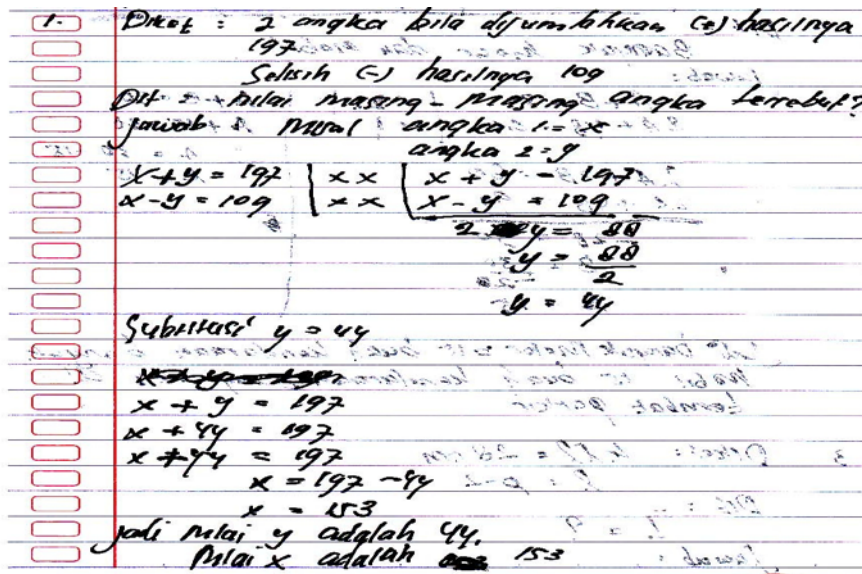 1. Diket : 2 angka bila dijumlahkan (+) hasilnya
197
Selisih (-) hasilnya 109
Dit = Nilai masing - masing angka tersebut?
Jawab : Misal angka 1 = x
angka 2 = y
x + y = 197 | x x | x + y = 197
x - y = 109 | x x | x - y = 109
2 y = 88
y = 88
2
y = 44
Substitusi y = 44
x + y = 197
x + 44 = 197
x + 44 = 197
x = 197 - 44
x = 153
Jadi nilai y adalah 44.
Nilai x adalah 153